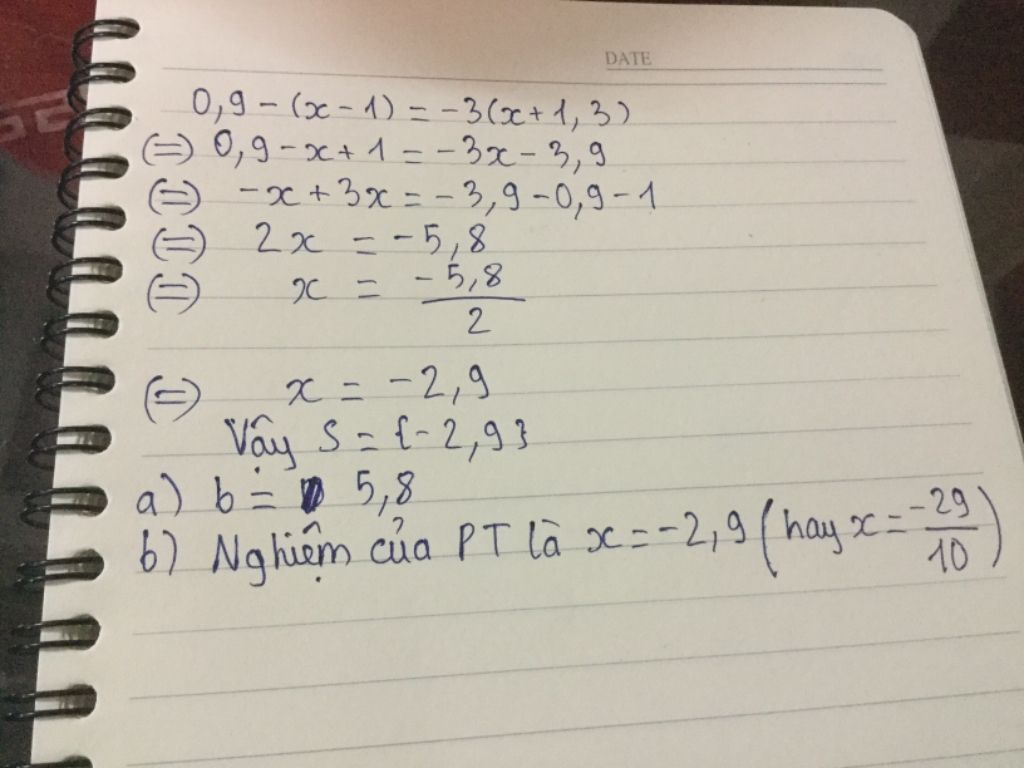 DATE
0,9 - (x - 1) = -3(x + 1,3)
(=) 0,9 - x + 1 = -3x - 3,9
(=) -x + 3x = -3,9 - 0,9 - 1
(=) 2x = -5,8
(=) x = -5,8/2
(=) x = -2,9
Vậy S = {-2,9}
a) b = 5,8
b) Nghiệm của PT là x = -2,9 (hay x = -29/10)